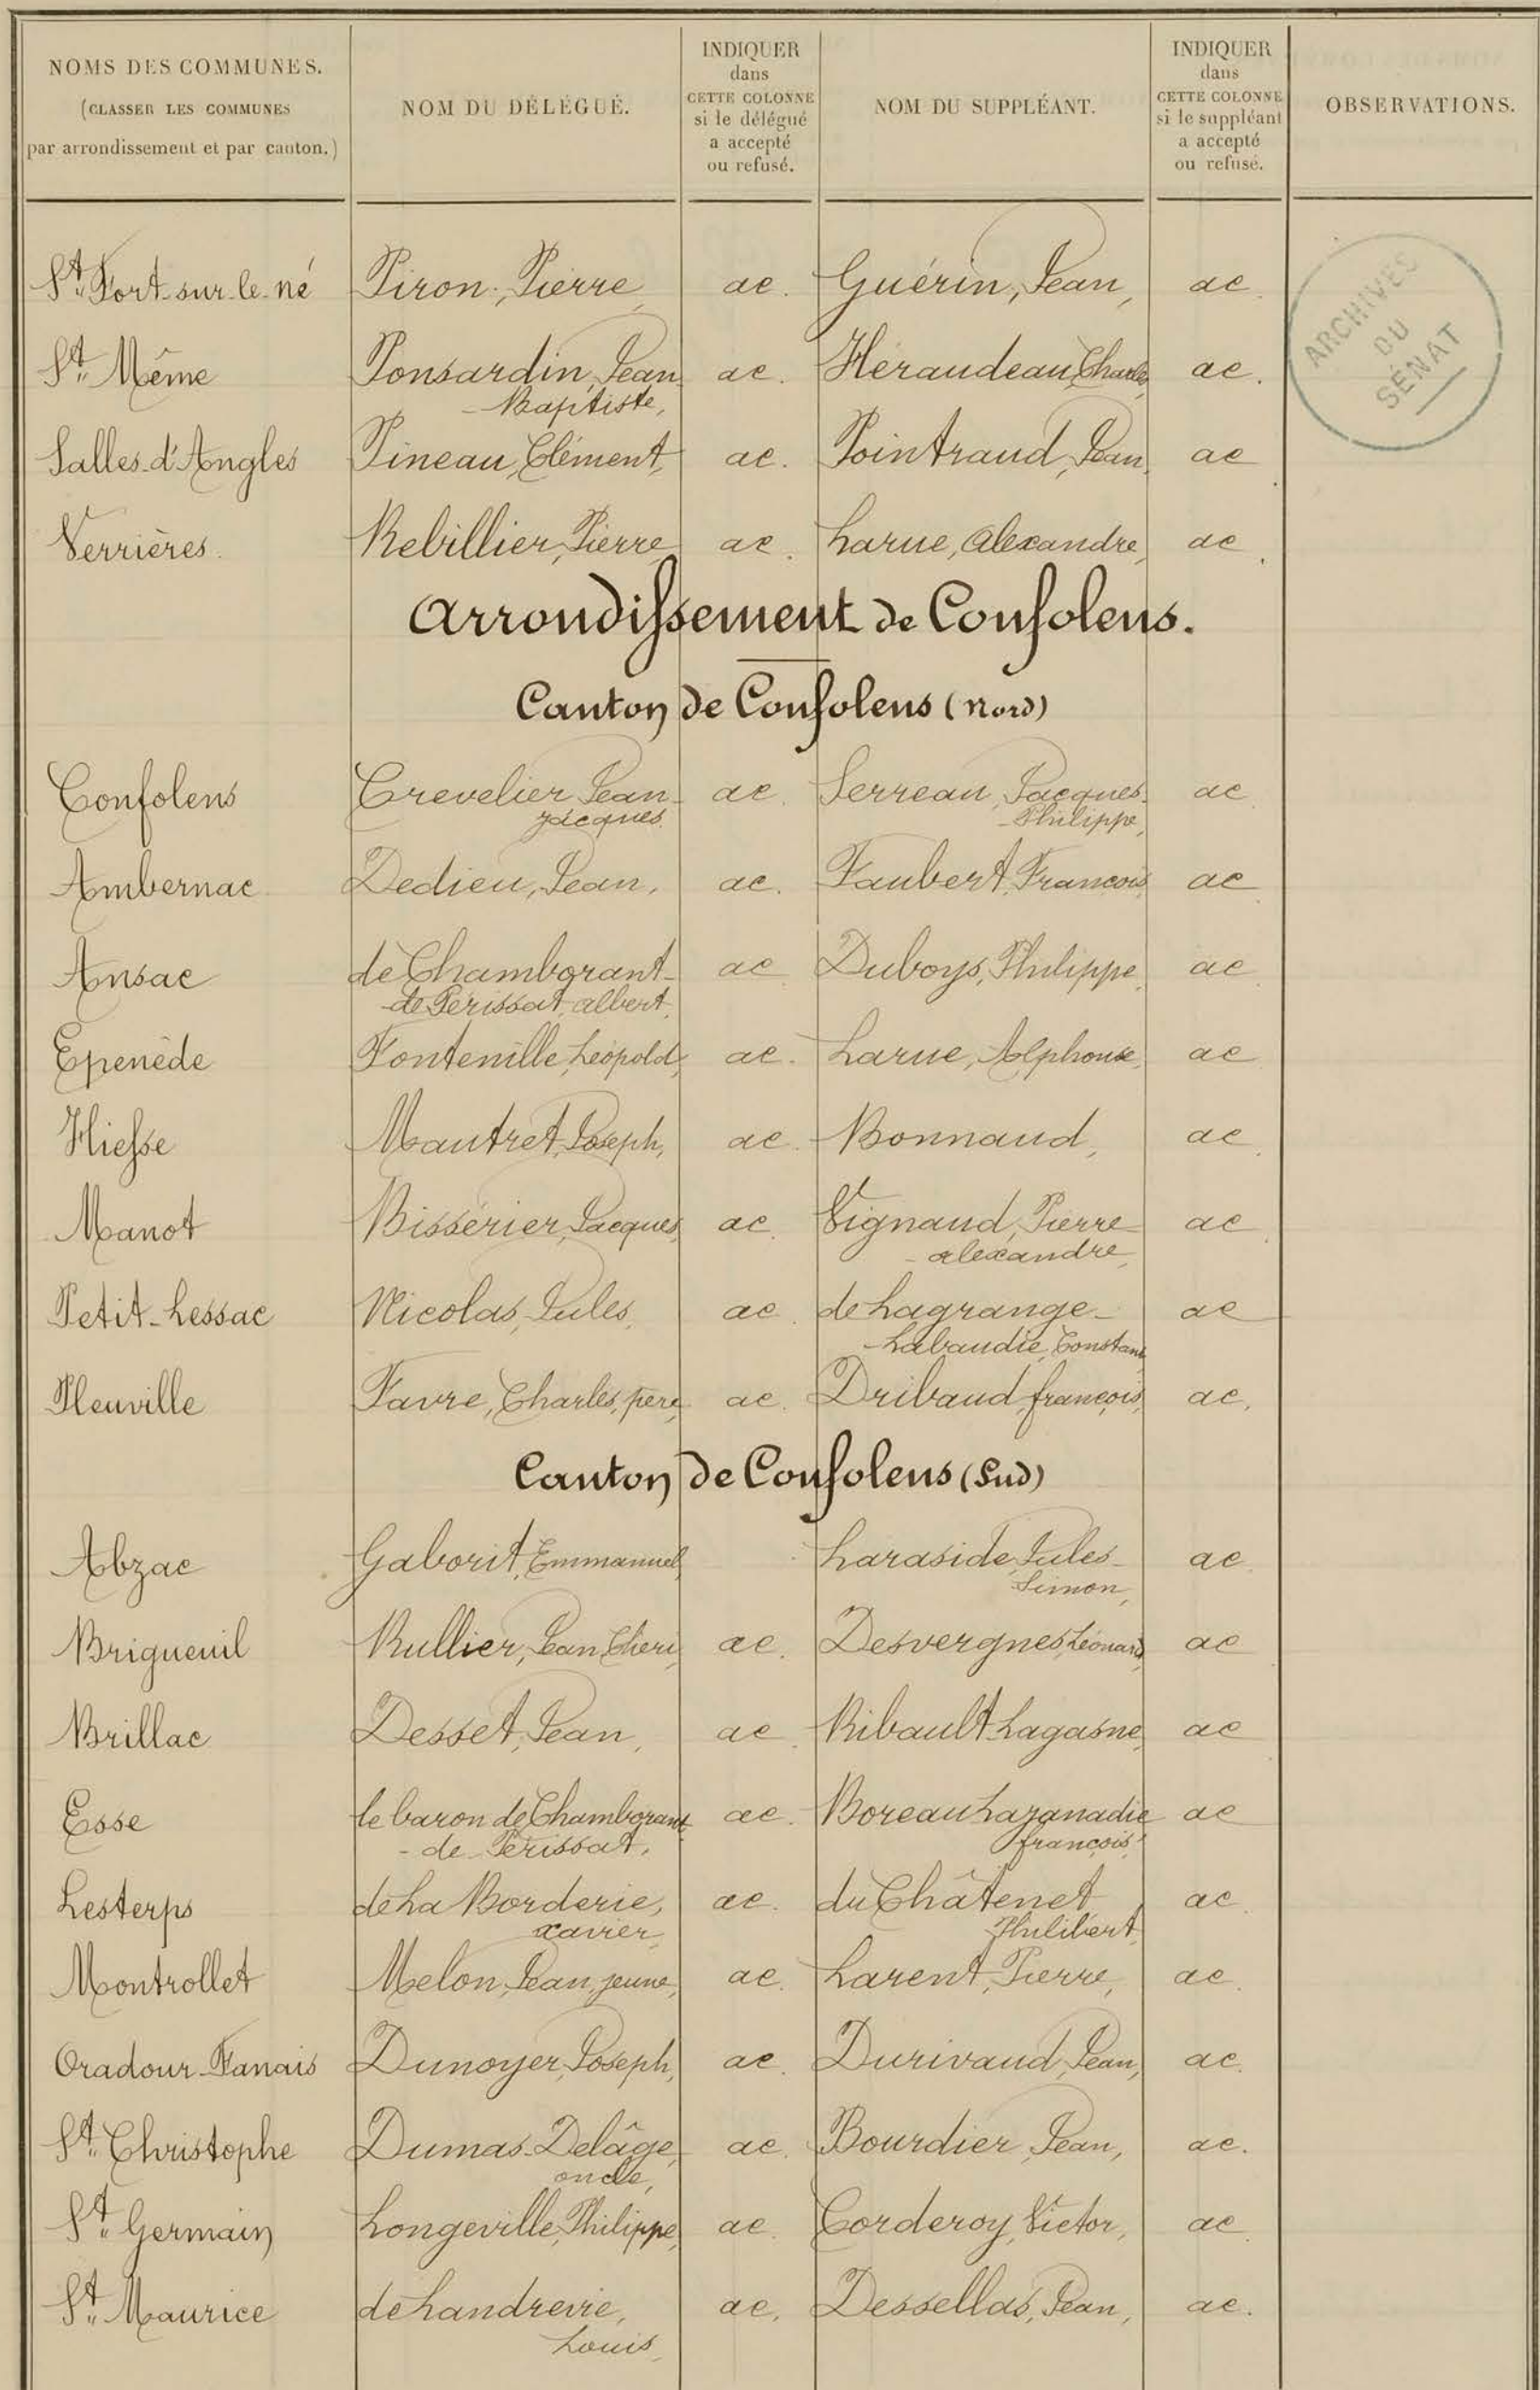 NOMS DES COMMUNES.
(CLASSER LES COMMUNES
par arrondissement et par canton.)
NOM DU DÉLÉGUÉ.
INDIQUER
dans
CETTE COLONNE
si le délégué
a accepté
ou refusé.
NOM DU SUPPLÉANT.
INDIQUER
dans
CETTE COLONNE
si le suppléant
a accepté
ou refusé.
OBSERVATIONS.
ARCHIVES
DU
SÉNAT
St Fort-sur-le-né Piron, Pierre, ac. Guérin, Jean, ac.
St Même Ponsardin, Jean- ac. Héraudeau, Charles, ac.
-Baptiste,
Salles-d'Angles Pineau, Clément, ac. Pointraud, Jean, ac
Verrières. Rebillier, Pierre, ac. Larue, Alexandre, ac.
Arrondissement de Confolens.
Canton de Confolens (Nord)
Confolens Crevelier, Jean- ac. Serreau, Jacques- ac.
Jacques. -Philippe,
Ambernac Dedieu, Jean, ac. Faubert, François, ac.
Ansac de Chamborant- ac. Duboys, Philippe, ac.
-de Périssat, Albert,
Epenède Fontenille, Léopold, ac. Larue, Alphonse, ac
Hiesse Mautret, Joseph, ac. Bonnaud, ac.
Manot Bissérier, Jacques, ac. Vignaud, Pierre- ac.
-Alexandre,
Petit-Lessac Nicolas, Jules, ac. de Lagrange- ac
-Labaudie, Constant
Pleuville Favre, Charles, père, ac. Dribaud, françois, ac.
Canton de Confolens (Sud)
Abzac Gaborit, Emmanuel, Laraside, Jules- ac.
Simon,
Brigueuil Rullier, Jean Chéri, ac. Desvergnes, Léonard, ac.
Brillac Desset, Jean, ac. Ribault-Lagasne, ac
Esse le baron de Chamborant- ac. Boreau Lajanadie ac
-de-Périssat, françois,
Lesterps de La Borderie, ac. du Châtenet, ac.
Xavier, Philibert,
Montrollet Melon, Jean, jeune, ac. Larent, Pierre, ac.
Oradour-Fanais Dunoyer, Joseph, ac. Durivaud, Jean, ac.
St Christophe Dumas-Delâge, ac. Bourdier, Jean, ac.
oncle,
St Germain Longeville, Philippe, ac. Corderoy, Victor, ac.
St Maurice de Landrevie, ac. Dessellas, Jean, ac.
Louis,